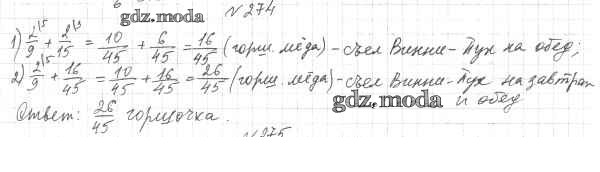 gdz.moda
№ 274
1) 2/9 \5 + 2/15 \3 = 10/45 + 6/45 = 16/45 (горш. мёда) – съел Винни-Пух на обед;
2) 2/9 \5 + 16/45 = 10/45 + 16/45 = 26/45 (горш. мёда) – съел Винни-Пух на завтрак
gdz.moda и обед
Ответ: 26/45 горшочка.
№275